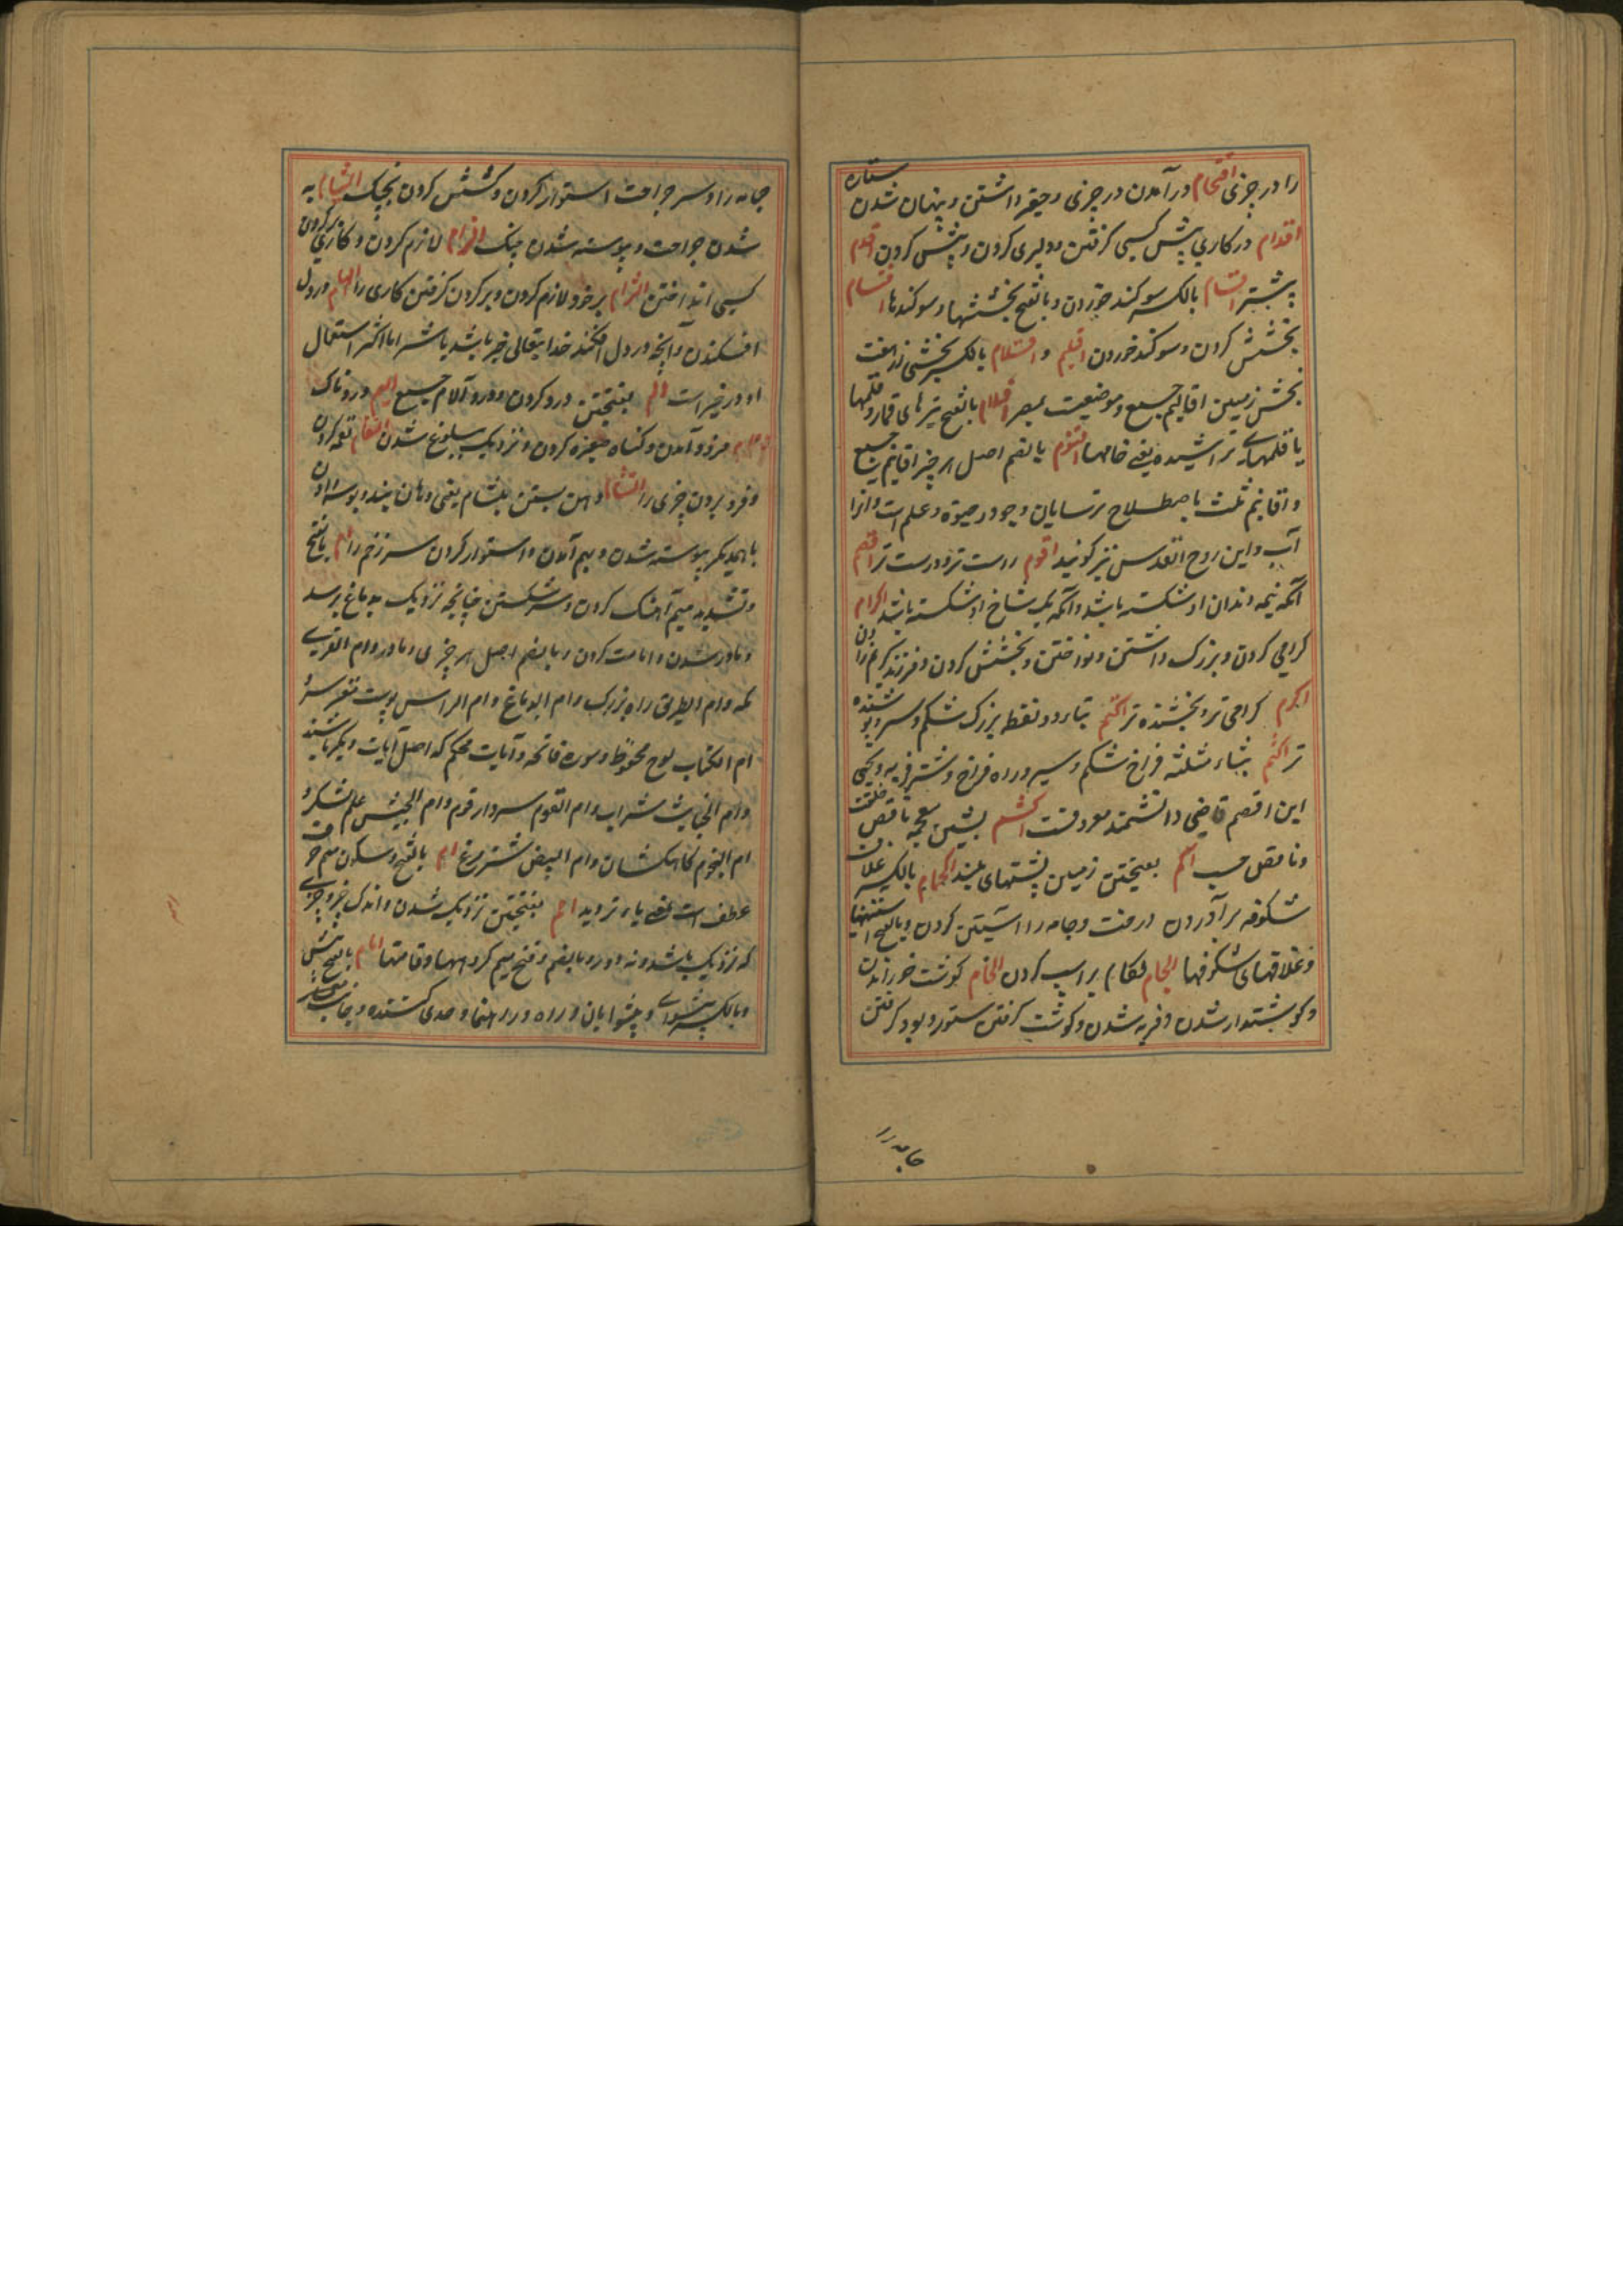 را در چیزی اقتحام در آمدن در چیزی و حقیر داشتن و پنهان شدن ستاره
اقدام در کاری پیش کسی گرفتن و دلیری کردن و پیش کردن اقدم
پیشتر اقسام بالکسر سوکند خوردن و بالفتح بخششها و سوکندها اقتسام
بخشش کردن و سوکند خوردن اقلیم و بالکسر بخشی از هفت
بخش زمین اقالیم جمع و موضعیت بمصر اقلام بالفتح تیرهای قمار و قلمها
یا قلمهای تراشیده یعنی خامها اقنوم بالضم اصل هر چیز اقانیم جمع
و اقانیم ثلث باصطلاح ترسایان وجود و حیوة و علم است و انرا
آب و ابن و روح القدس نیز کویند اقوم راست تر و درست تر اقصم
آنکه نیمه دندان او شکسته باشد و آنکه یک شاخ او شکسته باشد اکرام
کرامی کردن و بزرک داشتن و نواختن و بخشش کردن و فرزند کریم زادن
اکرم کرامی تر و بخشنده تر اکتم بتاء دو نقطه بزرک شکم و سیر و پوشنده
تر اکثم بثاء مثلثه فراخ شکم و سیر و راه فراخ و شتر فربه و یحیی
ابن اقصم قاضی دانشمند معروفست اکشم بشین معجمه ناقص خلقت
و ناقص حسب اکم بفتحتین زمین پشتهای بلند اکمام بالکسر غلاف
شکوفه برآوردن درخت و جامه را آستین کردن و بالفتح آستینها
و غلافهای شکوفها الجام لکام بر اسپ کردن الحام کوشت خورانیدن
و کوشتدار شدن و فربه شدن و کوشت کرفتن ستور و پود کرفتن
جامه را
جامه را و سر جراحت استوار کردن و کشش کردن بجنک التیام به
شدن جراحت و پیوسته شدن جنک الزام لازم کردن و کاری بر کردن
کسی انداختن التزام بر خود لازم کردن و بر کردن کرفتن کاری را الهام در دل
افکندن و آنچه در دل افکند خدایتعالی خیر باشد یا شر اما اکثر استعمال
او در خیر است الم بفتحتین درد کردن و درد آلام جمع الیم دردناک
المام فرود آمدن و کناه صغیره کردن و نزدیک ببلوغ شدن التقام لقمه کردن
و فرو بردن چیزی را التثام دهن بستن بلثام یعنی دهان بند و بوسه دادن
با یکدیکر پیوسته شدن و بهم آمدن و استوار کردن سر زخم را ام بالفتح
و تشدید میم آهنک کردن و سر شکستن چنانچه نزدیک به دماغ برسد
و مادر شدن و امامت کردن و بالضم اصل هر چیزی و مادر و ام القری
مکه و ام الطریق راه بزرک و ام الدماغ و ام الراس پوست مغز سر و
ام الکتاب لوح محفوظ و سوره فاتحه و آیات محکم که اصل آیات دیکر باشند
و ام الخبایث شراب و ام القوم سردار قوم و ام الجیش علم لشکر و
ام النجوم کاهکشان و ام البیض شتر مرغ ام بالفتح و سکون میم حرف
عطف است بمعنی یا و تردید امم بفتحتین نزدیک شدن و اندک چیز و چیزی
که نزدیک باشد و نه دور و بالضم و فتح میم کروهها و قامتها امام بالفتح پیش
و بالکسر پیشوای و پیشوایان و راه و راهنما و حدی کننده و جانب